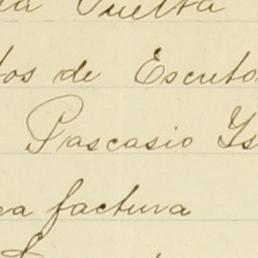 la Vuelta
tos de Escrito
Pascasio Is
va factura